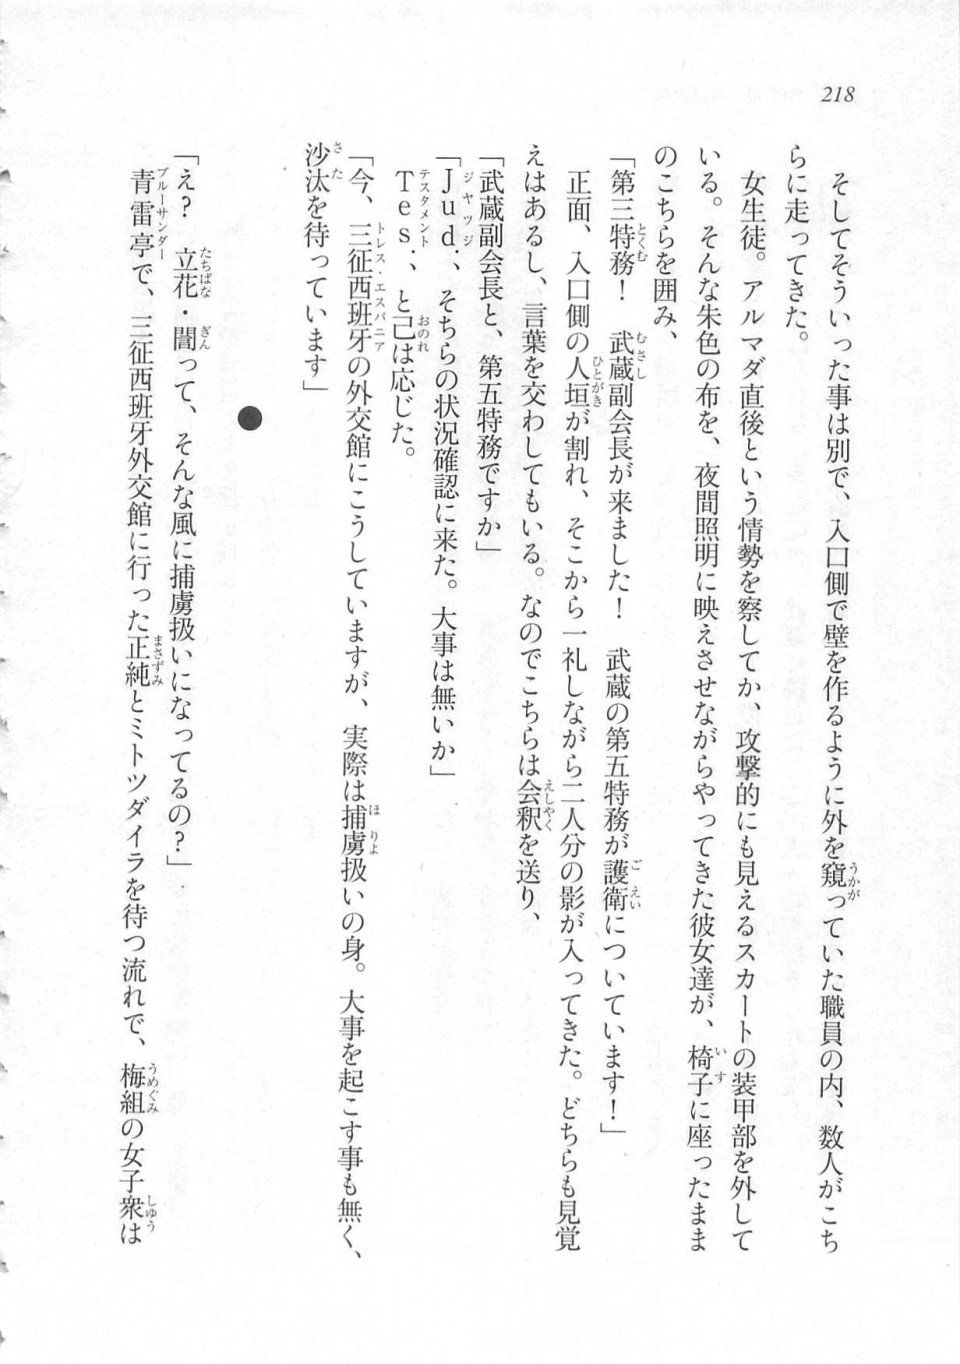 218
そしてそういった事は別で、入口側で壁を作るように外を窺っていた職員の内、数人がこち
らに走ってきた。
女生徒。アルマダ直後という情勢を察してか、攻撃的にも見えるスカートの装甲部を外して
いる。そんな朱色の布を、夜間照明に映えさせながらやってきた彼女達が、椅子に座ったまま
のこちらを囲み、
「第三特務！　武蔵副会長が来ました！　武蔵の第五特務が護衛についています！」
正面、入口側の人垣が割れ、そこから一礼しながら二人分の影が入ってきた。どちらも見覚
えはあるし、言葉を交わしてもいる。なのでこちらは会釈を送り、
「武蔵副会長と、第五特務ですか」
「Ｊｕｄ．、そちらの状況確認に来た。大事は無いか」
Ｔｅｓ．、と己は応じた。
「今、三征西班牙の外交館にこうしていますが、実際は捕虜扱いの身。大事を起こす事も無く、
沙汰を待っています」
●
「え？　立花・誾って、そんな風に捕虜扱いになってるの？」
青雷亭で、三征西班牙外交館に行った正純とミトツダイラを待つ流れで、梅組の女子衆は